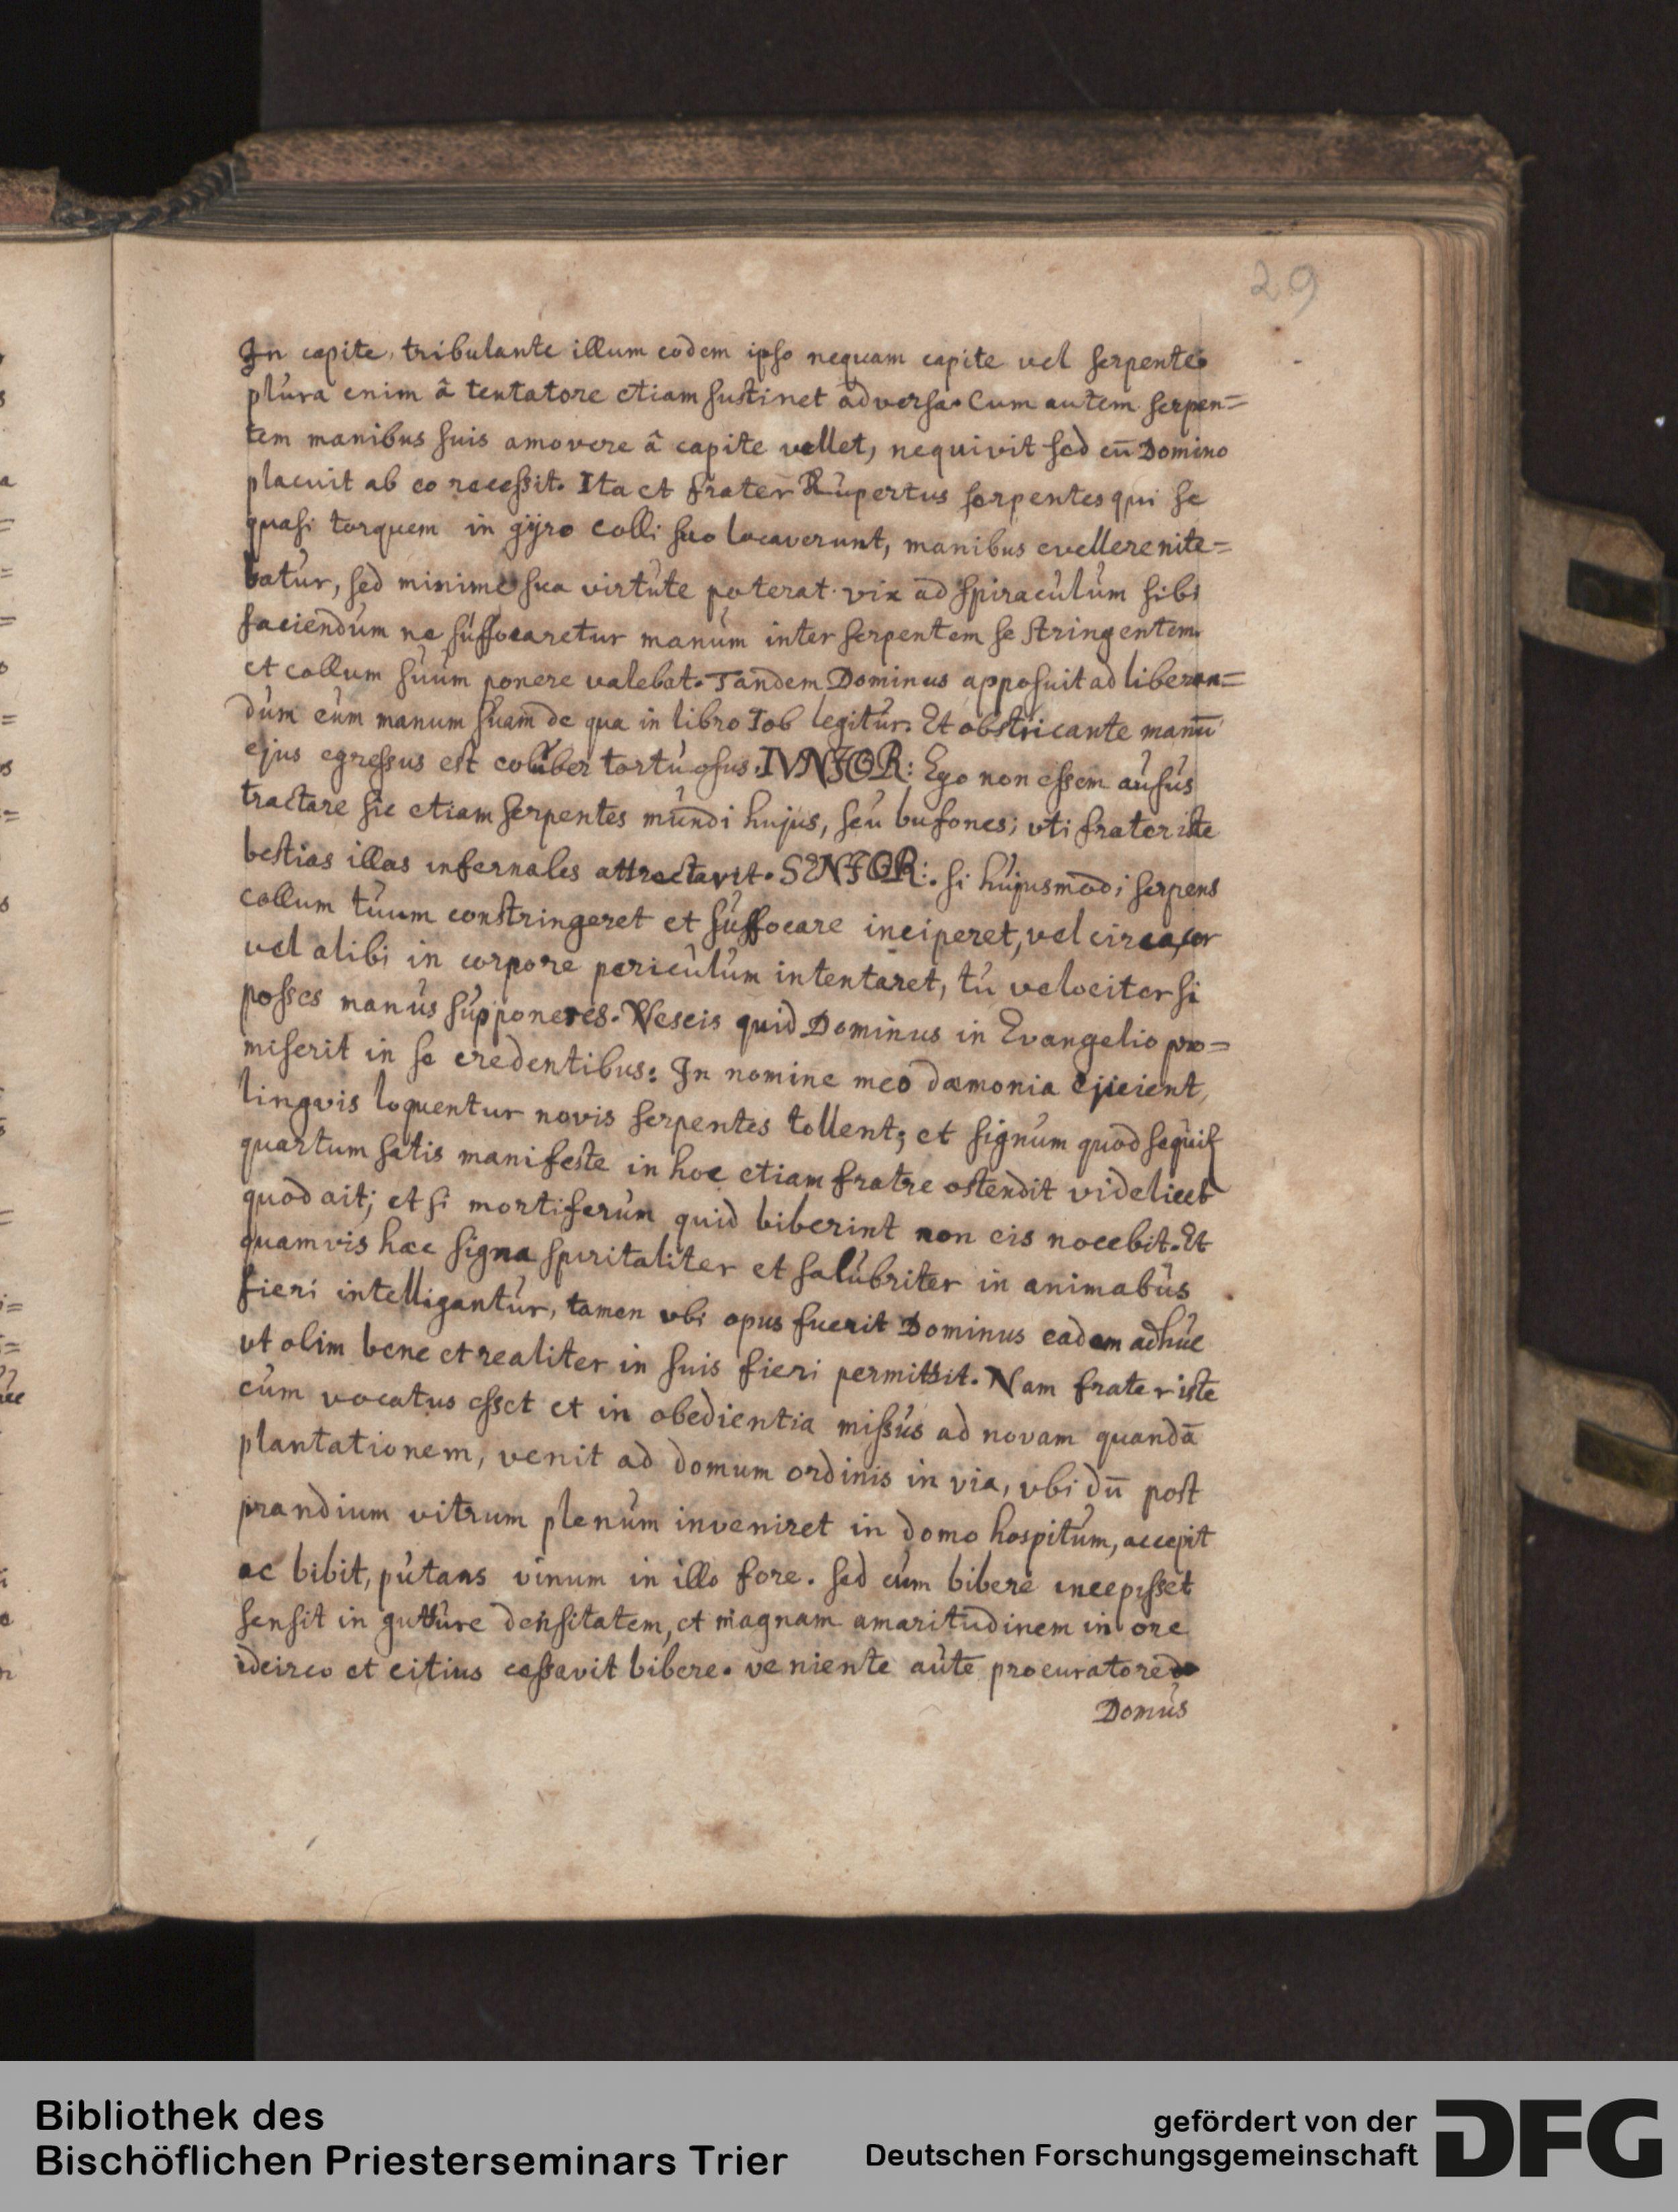 29
In capite, tribulante illum eodem ipso nequam capite vel serpente
plura enim â tentatore etiam sustinet adversa. Cum autem serpen=
tem manibus suis amovere â capite vellet, nequivit sed cū Domino
placuit ab eo recessit. Ita et frater Rupertus serpentes qui se
quasi torquem in gÿro colli suo locaverunt, manibus evellere nite=
batur, sed minime sua virtute poterat. vix ad spiraculum sibi
faciendum ne suffocaretur manum inter serpentem se stringentem
et collum suum ponere valebat. Tandem Dominus apposuit ad liberan=
dum eum manum suam de qua in libro Iob legitur. Et obstricante manū
ejus egressus est coluber tortuosus. IVNIOR: Ego non essem ausus
tractare sic etiam serpentes mundi hujus, seu bufones; vti frater iste
bestias illas infernales attrectavit. SENIOR: si hujusmodi serpens
collum tuum constringeret et suffocare inciperet, vel circa cor
vel alibi in corpore periculum intentaret, tu velociter si
posses manus supponeres. Nescis quid Dominus in Evangelio pro=
miserit in se credentibus: In nomine meo dæmonia ejicient,
lingvis loquentur novis serpentes tollent; et signum quod sequit
quartum satis manifeste in hoc etiam fratre ostendit videlicet
quod ait; et si mortiferum quid biberint non eis nocebit. Et
quamvis hæc signa spiritaliter et salubriter in animabus
fieri intelligantur, tamen vbi opus fuerit Dominus eadem adhuc
vt olim bene et realiter in suis fieri permittit. Nam frater iste
cum vocatus esset et in obedientia missus ad novam quandā
plantationem, venit ad domum ordinis in via, vbi dū post
prandium vitrum plenum inveniret in domo hospitum, accepit
ac bibit, putans vinum in illo fore. sed cum bibere incepisset
sensit in gutture densitatem, et magnam amaritudinem in ore
idcirco et citius cessavit bibere. veniente aute procuratore
Domus
Bibliothek des
Bischöflichen Priesterseminars Trier
gefördert von der
Deutschen Forschungsgemeinschaft
DFG